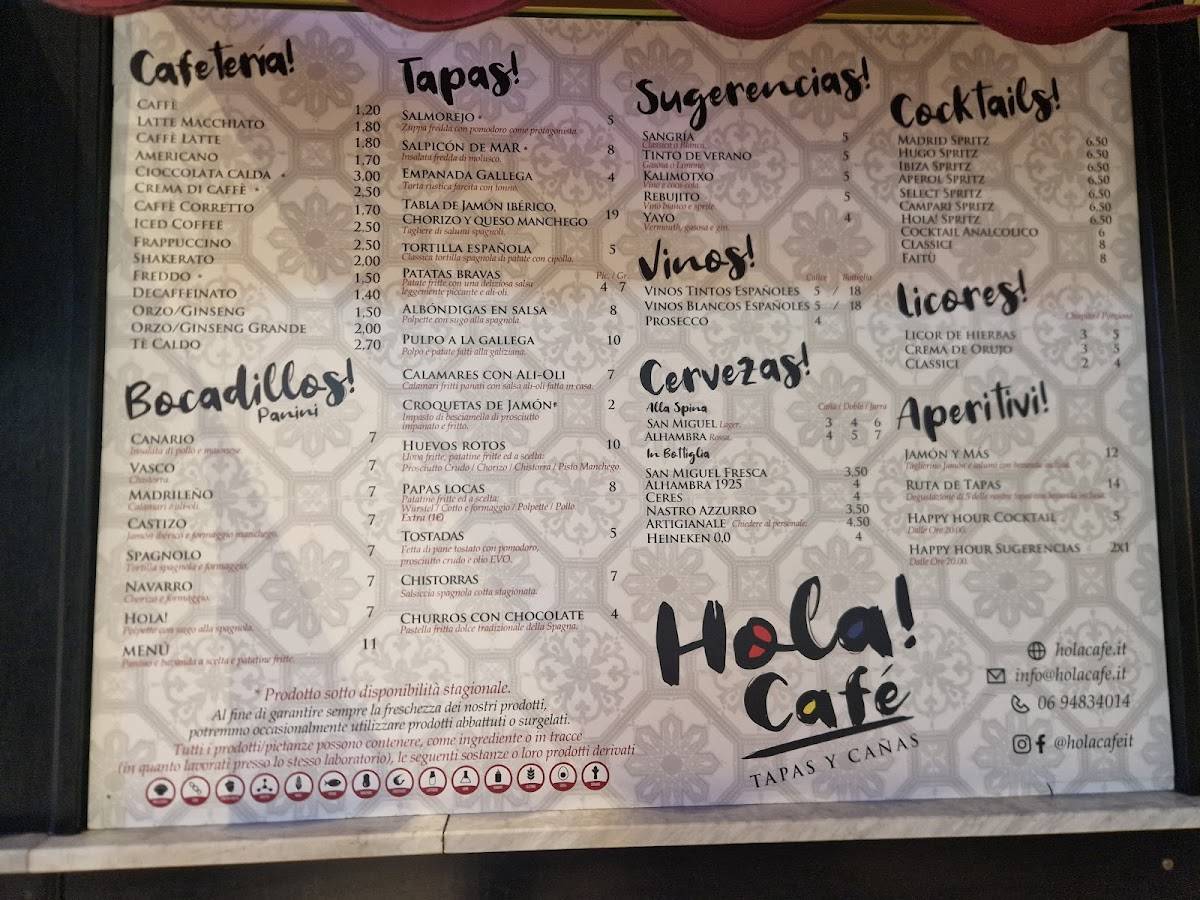 Cafetería!
CAFFÈ 1,20
LATTE MACCHIATO 1,80
CAFFÈ LATTE 1,80
AMERICANO 1,70
CIOCCOLATA CALDA * 3,00
CREMA DI CAFFÈ * 2,50
CAFFÈ CORRETTO 1,70
ICED COFFEE 2,50
FRAPPUCCINO 2,50
SHAKERATO 2,00
FREDDO * 1,50
DECAFFEINATO 1,40
ORZO/GINSENG 1,50
ORZO/GINSENG GRANDE 2,00
TÈ CALDO 2,70
Bocadillos!
Panini
CANARIO 7
Insalata di pollo e maionese.
VASCO 7
Chistorra.
MADRILEÑO 7
Calamari e ali-oli.
CASTIZO 7
Jamón iberico e formaggio manchego.
SPAGNOLO 7
Tortilla spagnola e formaggio.
NAVARRO 7
Chorizo e formaggio.
HOLA! 7
Polpette con sugo alla spagnola.
MENÚ 11
Panino e bevanda a scelta e patatine fritte.
Tapas!
SALMOREJO * 5
Zuppa fredda con pomodoro come protagonista.
SALPICÓN DE MAR * 8
Insalata fredda di molusco.
EMPANADA GALLEGA 4
Torta rustica farcita con tonno.
TABLA DE JAMÓN IBÉRICO,
CHORIZO Y QUESO MANCHEGO 19
Tagliere di salumi spagnoli.
TORTILLA ESPAÑOLA 5
Classica tortilla spagnola di patate con cipolla.
PATATAS BRAVAS Pic. / Gr.
Patate fritte con una deliziosa salsa 4 7
leggemente piccante e ali-oli.
ALBÓNDIGAS EN SALSA 8
Polpette con sugo alla spagnola.
PULPO A LA GALLEGA 10
Polpo e patate fatti alla galiziana.
CALAMARES CON ALI-OLI 7
Calamari fritti panati con salsa ali-oli fatta in casa.
CROQUETAS DE JAMÓN* 2
Impasto di besciamella di prosciutto
impanato e fritto.
HUEVOS ROTOS 10
Uova fritte, patatine fritte ed a scelta:
Prosciutto Crudo / Chorizo / Chistorra / Pisto Manchego
PAPAS LOCAS 8
Patatine fritte ed a scelta:
Würstel / Cotto e formaggio / Polpette / Pollo.
Extra (1€)
TOSTADAS 5
Fetta di pane tostato con pomodoro,
prosciutto crudo e olio EVO.
CHISTORRAS 7
Salsiccia spagnola cotta stagionata.
CHURROS CON CHOCOLATE 4
Pastella fritta dolce tradizionale della Spagna.
Sugerencias!
SANGRÍA 5
Classica o Bianca.
TINTO DE VERANO 5
Gasosa o Limone.
KALIMOTXO 5
Vino e coca-cola.
REBUJITO 5
Vino bianco e sprite.
YAYO 4
Vermouth, gasosa e gin.
Vinos!
Calice Bottiglia
VINOS TINTOS ESPAÑOLES 5 / 18
VINOS BLANCOS ESPAÑOLES 5 / 18
PROSECCO 4
Cervezas!
Alla Spina Caña / Doble / Jarra
SAN MIGUEL Lager. 3 4 6
ALHAMBRA Rossa. 4 5 7
In Bottiglia
SAN MIGUEL FRESCA 3.50
ALHAMBRA 1925 4
CERES 4
NASTRO AZZURRO 3.50
ARTIGIANALE Chiedere al personale. 4.50
HEINEKEN 0,0 4
Cocktails!
MADRID SPRITZ 6.50
HUGO SPRITZ 6.50
IBIZA SPRITZ 6.50
APEROL SPRITZ 6.50
SELECT SPRITZ 6.50
CAMPARI SPRITZ 6.50
HOLA! SPRITZ 6.50
COCKTAIL ANALCOLICO 6
CLASSICI 8
FAITÙ 8
Licores!
Chupito / Porzione
LICOR DE HIERBAS 3 5
CREMA DE ORUJO 3 5
CLASSICI 2 4
Aperitivi!
JAMÓN Y MÁS 12
Taglierino Jamón e salumi con bevanda inclusa.
RUTA DE TAPAS 14
Degustazione di 5 delle nostre tapas con bevanda inclusa.
HAPPY HOUR COCKTAIL 5
Dalle Ore 20.00.
HAPPY HOUR SUGERENCIAS 2X1
Dalle Ore 20.00.
* Prodotto sotto disponibilità stagionale.
Al fine di garantire sempre la freschezza dei nostri prodotti,
potremmo occasionalmente utilizzare prodotti abbattuti o surgelati.
Tutti i prodotti/pietanze possono contenere, come ingrediente o in tracce
(in quanto lavorati presso lo stesso laboratorio), le seguenti sostanze o loro prodotti derivati
Hola!
Café
TAPAS Y CAÑAS
holacafe.it
info@holacafe.it
06 94834014
@holacafeit